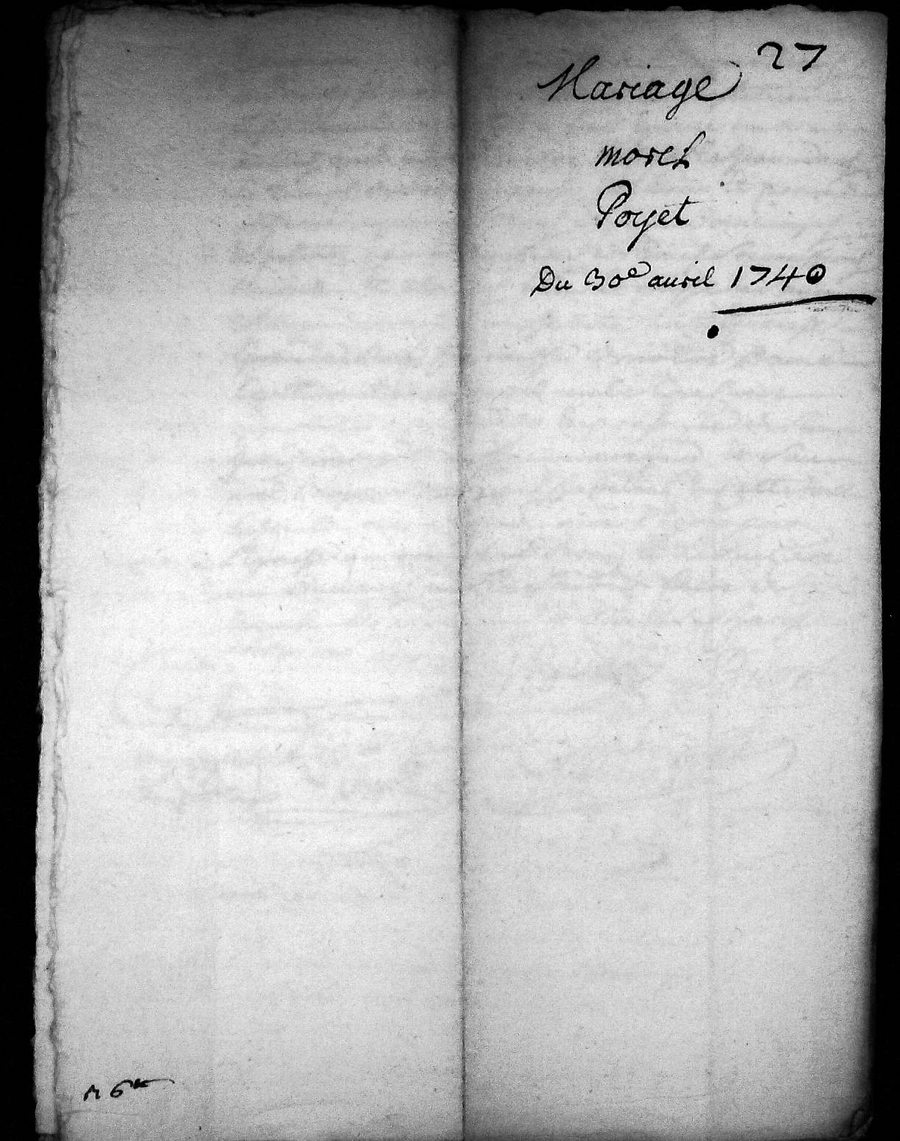 27
Mariage
morel
Poyet
Du 30e avril 1740